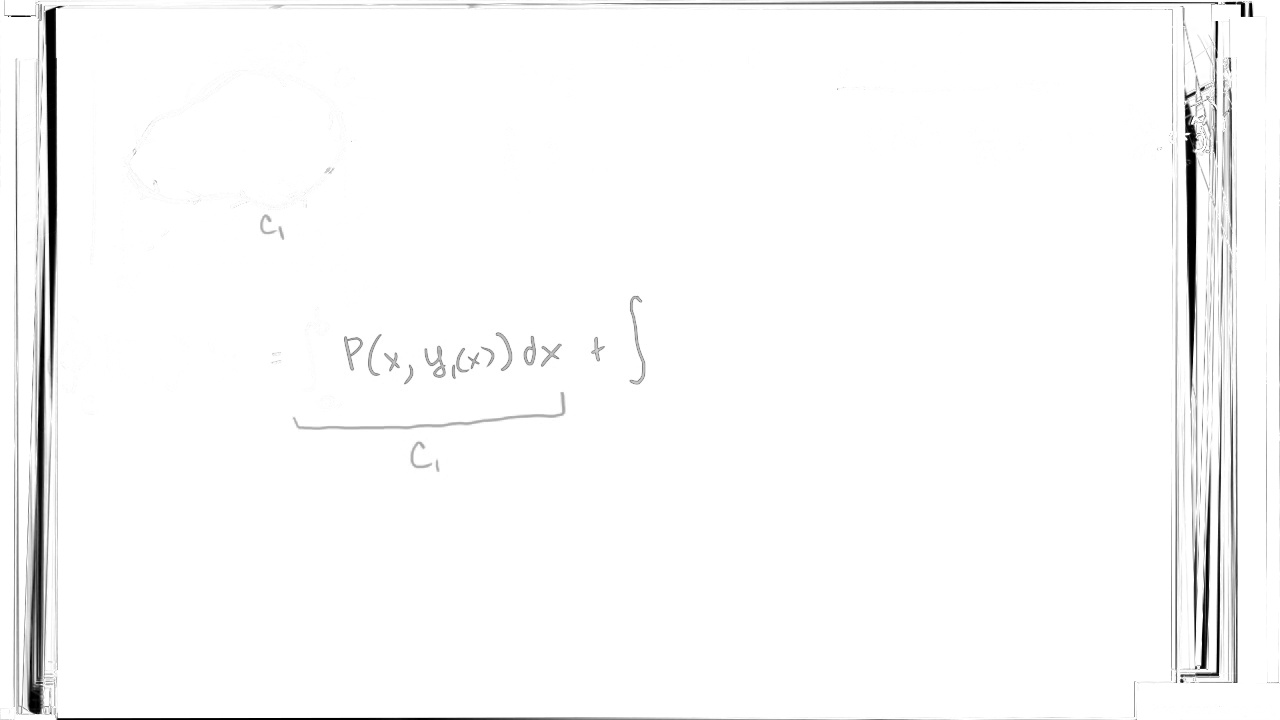 C₁
= P(x, y₁(x)) dx + ∫
C₁